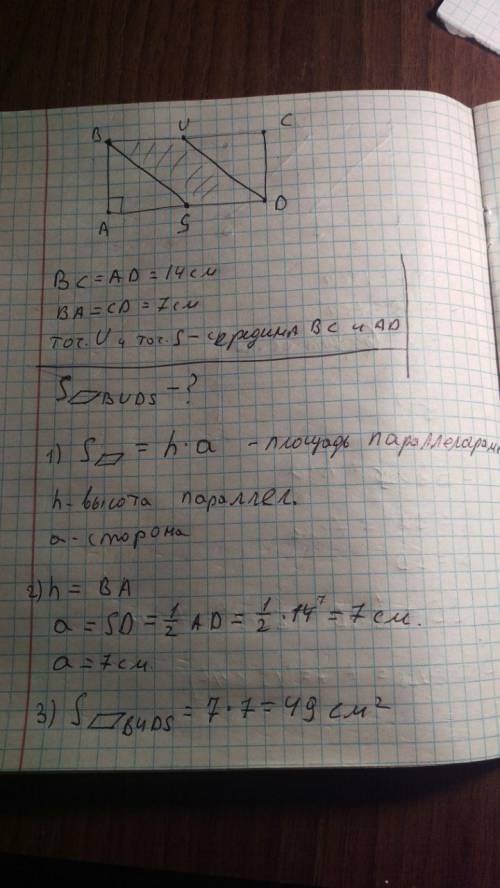 B U C
A S D
BC = AD = 14 см
BA = CD = 7 см
точ. U и точ. S - середина BC и AD
S▱BUDS - ?
1) S▱ = h · a - площадь
h - высота параллел.
a - сторона
2) h = BA
a = SD = 1/2 AD = 1/2 · 14⁷ = 7 см.
a = 7 см
3) S▱BUDS = 7 · 7 = 49 см²